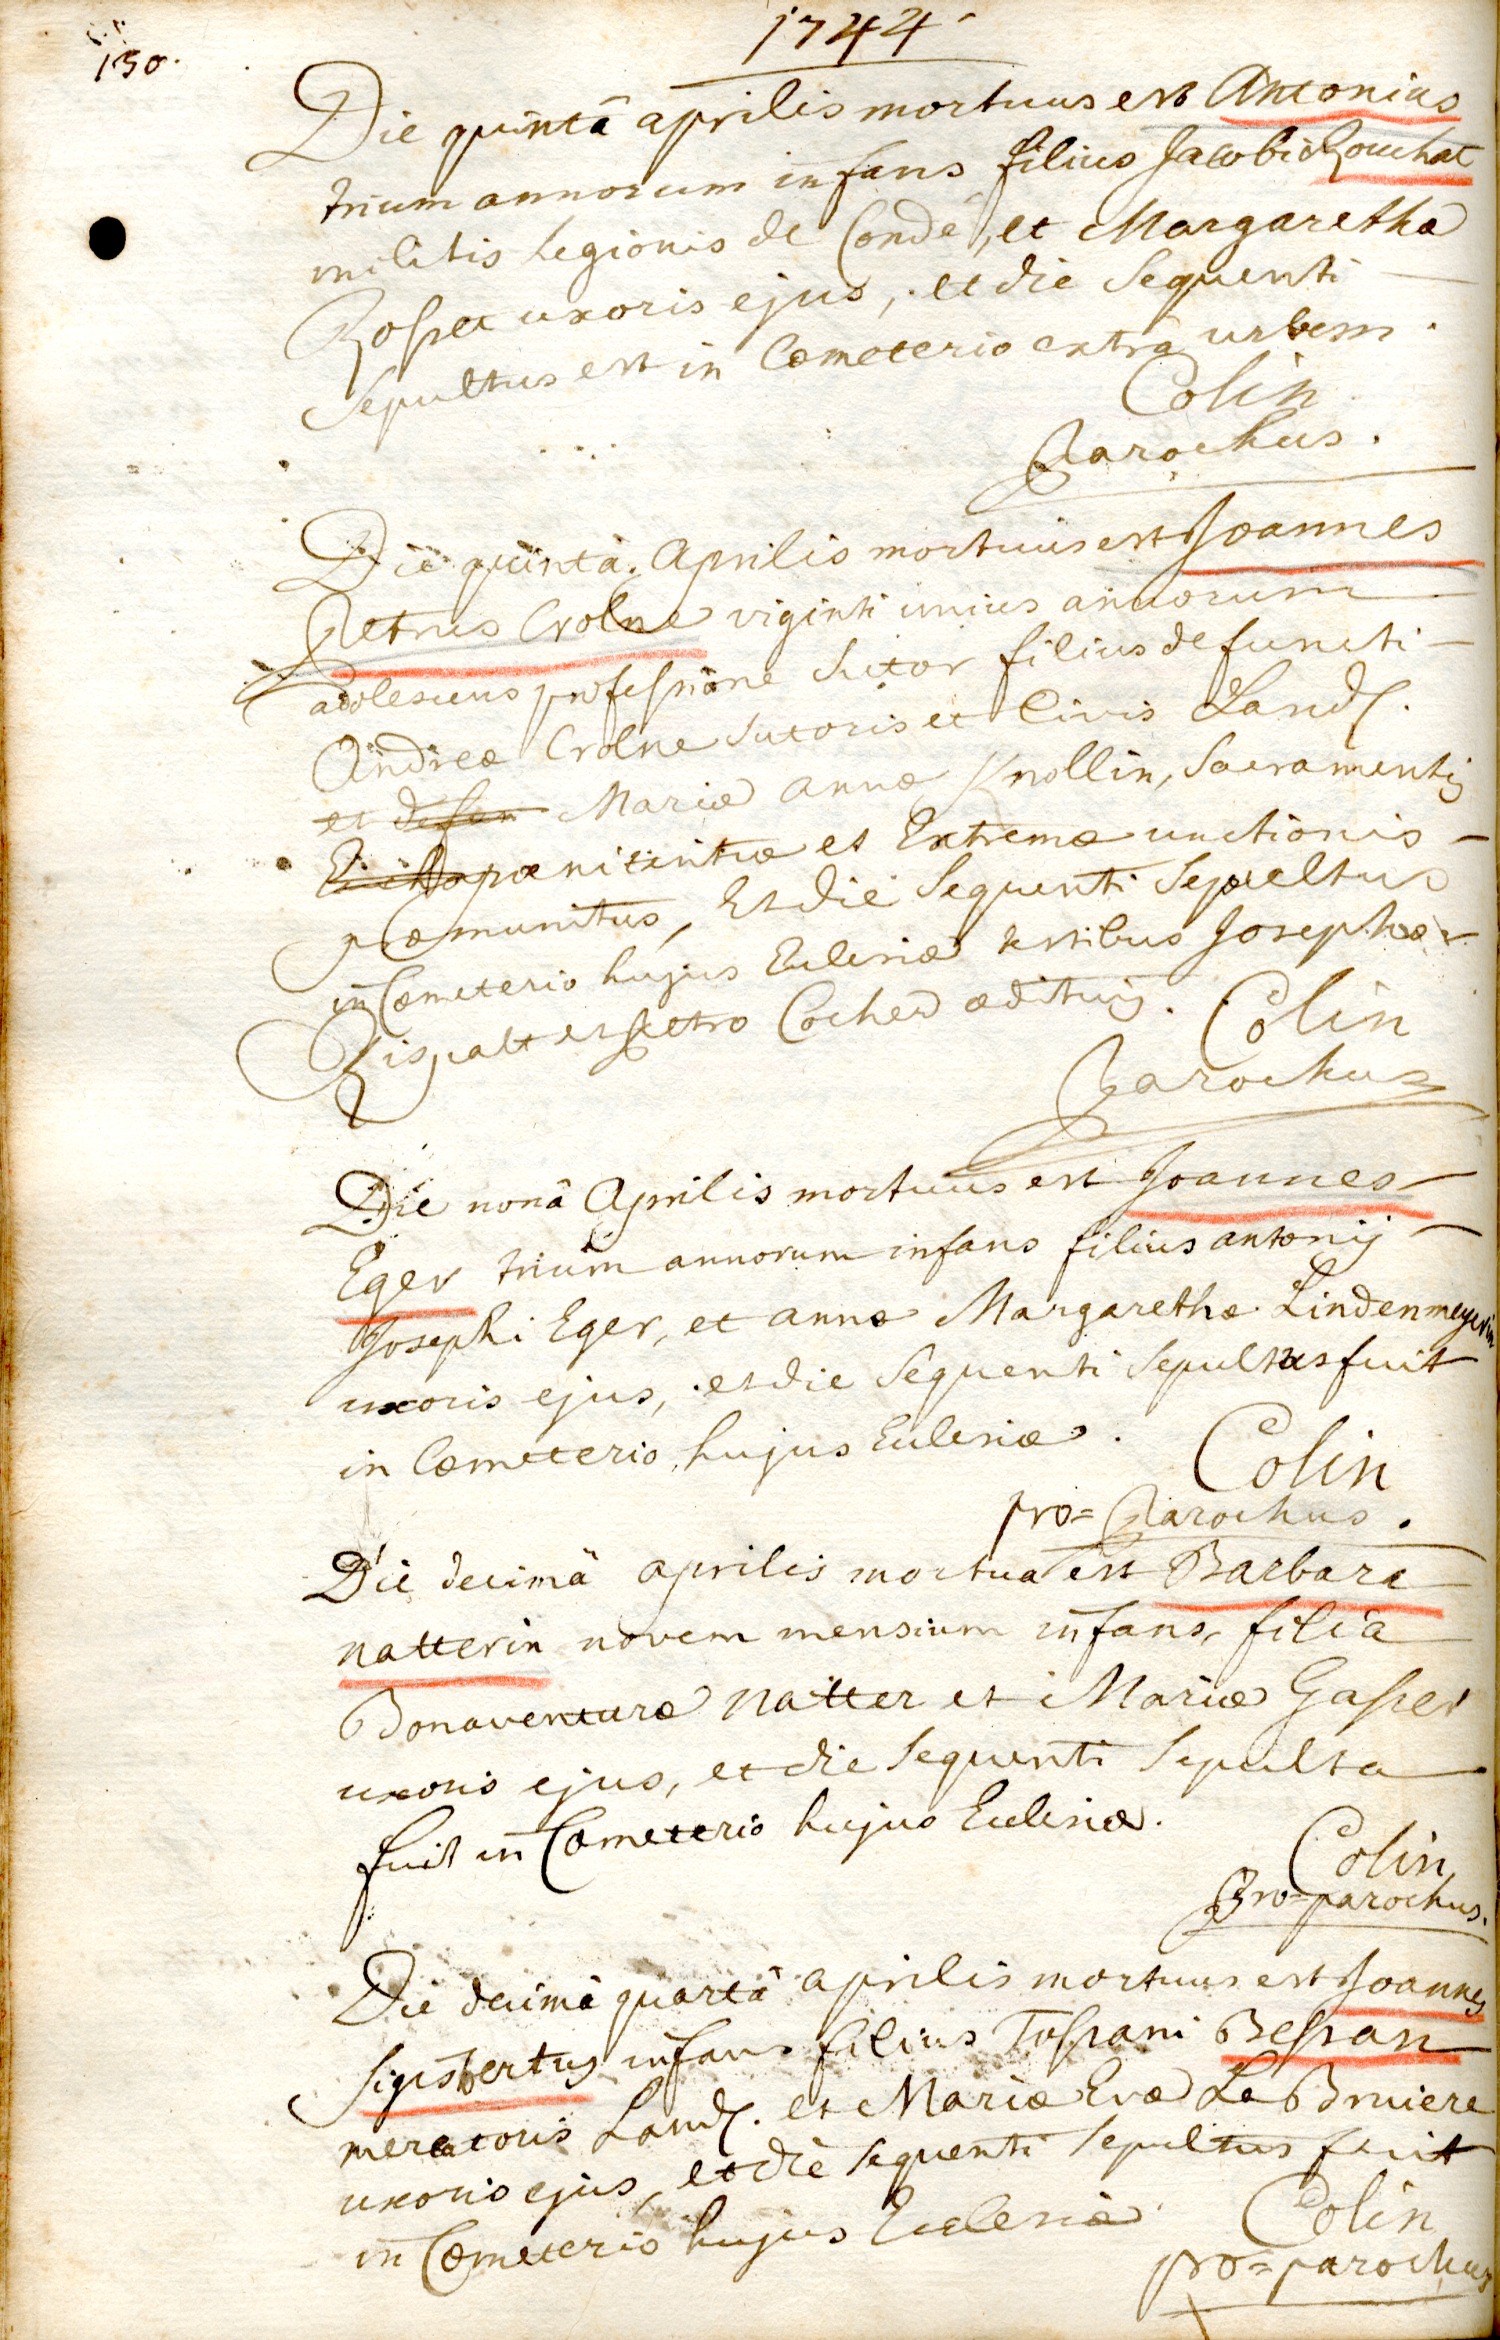 1744
130.
Die quintâ aprilis mortuus est Antonius
trium annorum infans filius Jacobi Rouchat
militis legionis de Condé, et Margaretha
uxoris ejus, et die sequenti
sepultus est in Cœmeterio extra urbem.
Colin
Parochus.
Die quintâ Aprilis mortuus est Joannes
Petrus Crolne viginti unius annorum
adolescens professione sutor filius defuncti
Andreæ Crolne sutoris et Civis Land.
et defun Mariæ annæ Knollin, Sacramentis
pœnitentiæ et Extremæ unctionis
præmunitus, Et die sequenti Sepultus
in Cœmeterio hujus Eclesiæ testibus Josepho
Rispalt et Petro Cocher ædituis.
Colin
Parochus
Die nonâ Aprilis mortuus est Joannes
Eger trium annorum infans filius antonij
Josephi Eger, et annæ Margarethæ Lindenmeyerin
uxoris ejus, et die sequenti sepultus fuit
in Cœmeterio hujus Eclesiæ.
Colin
pro=Parochus.
Die decimâ aprilis mortua est Barbara
natterin novem mensium infans, filia
Bonaventuræ natter et Mariæ Gasser
uxoris ejus, et die sequenti sepulta
fuit in Cœmeterio hujus Eclesiæ.
Colin
Pro=parochus.
Die decimâ quartâ aprilis mortuus est Joannes
Sigisbertus infans filius Tossani Bessan
mercatoris Land. et Mariæ Evæ La Bruiere
uxoris ejus, et die sequenti sepultus fuit
in Cœmeterio hujus Eclesiæ
Colin
pro=parochus